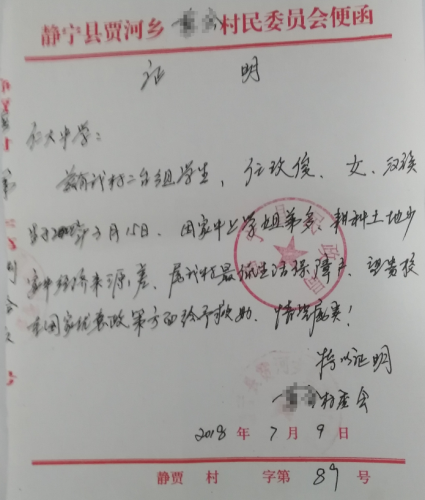 静宁县贾河乡 村民委员会便函
证 明
大中学:
兹有我村二台组学生, 任玫俊、女、汉族
生于 月15日、因家中上学姐弟多、耕种土地少
家中经济来源差、属我村最低生活保障户、望贵校
在国家优惠政策方面给予救助、情况属实!
特此证明
村委会
2018 年 7 月 9 日
静贾 村 字第 89 号